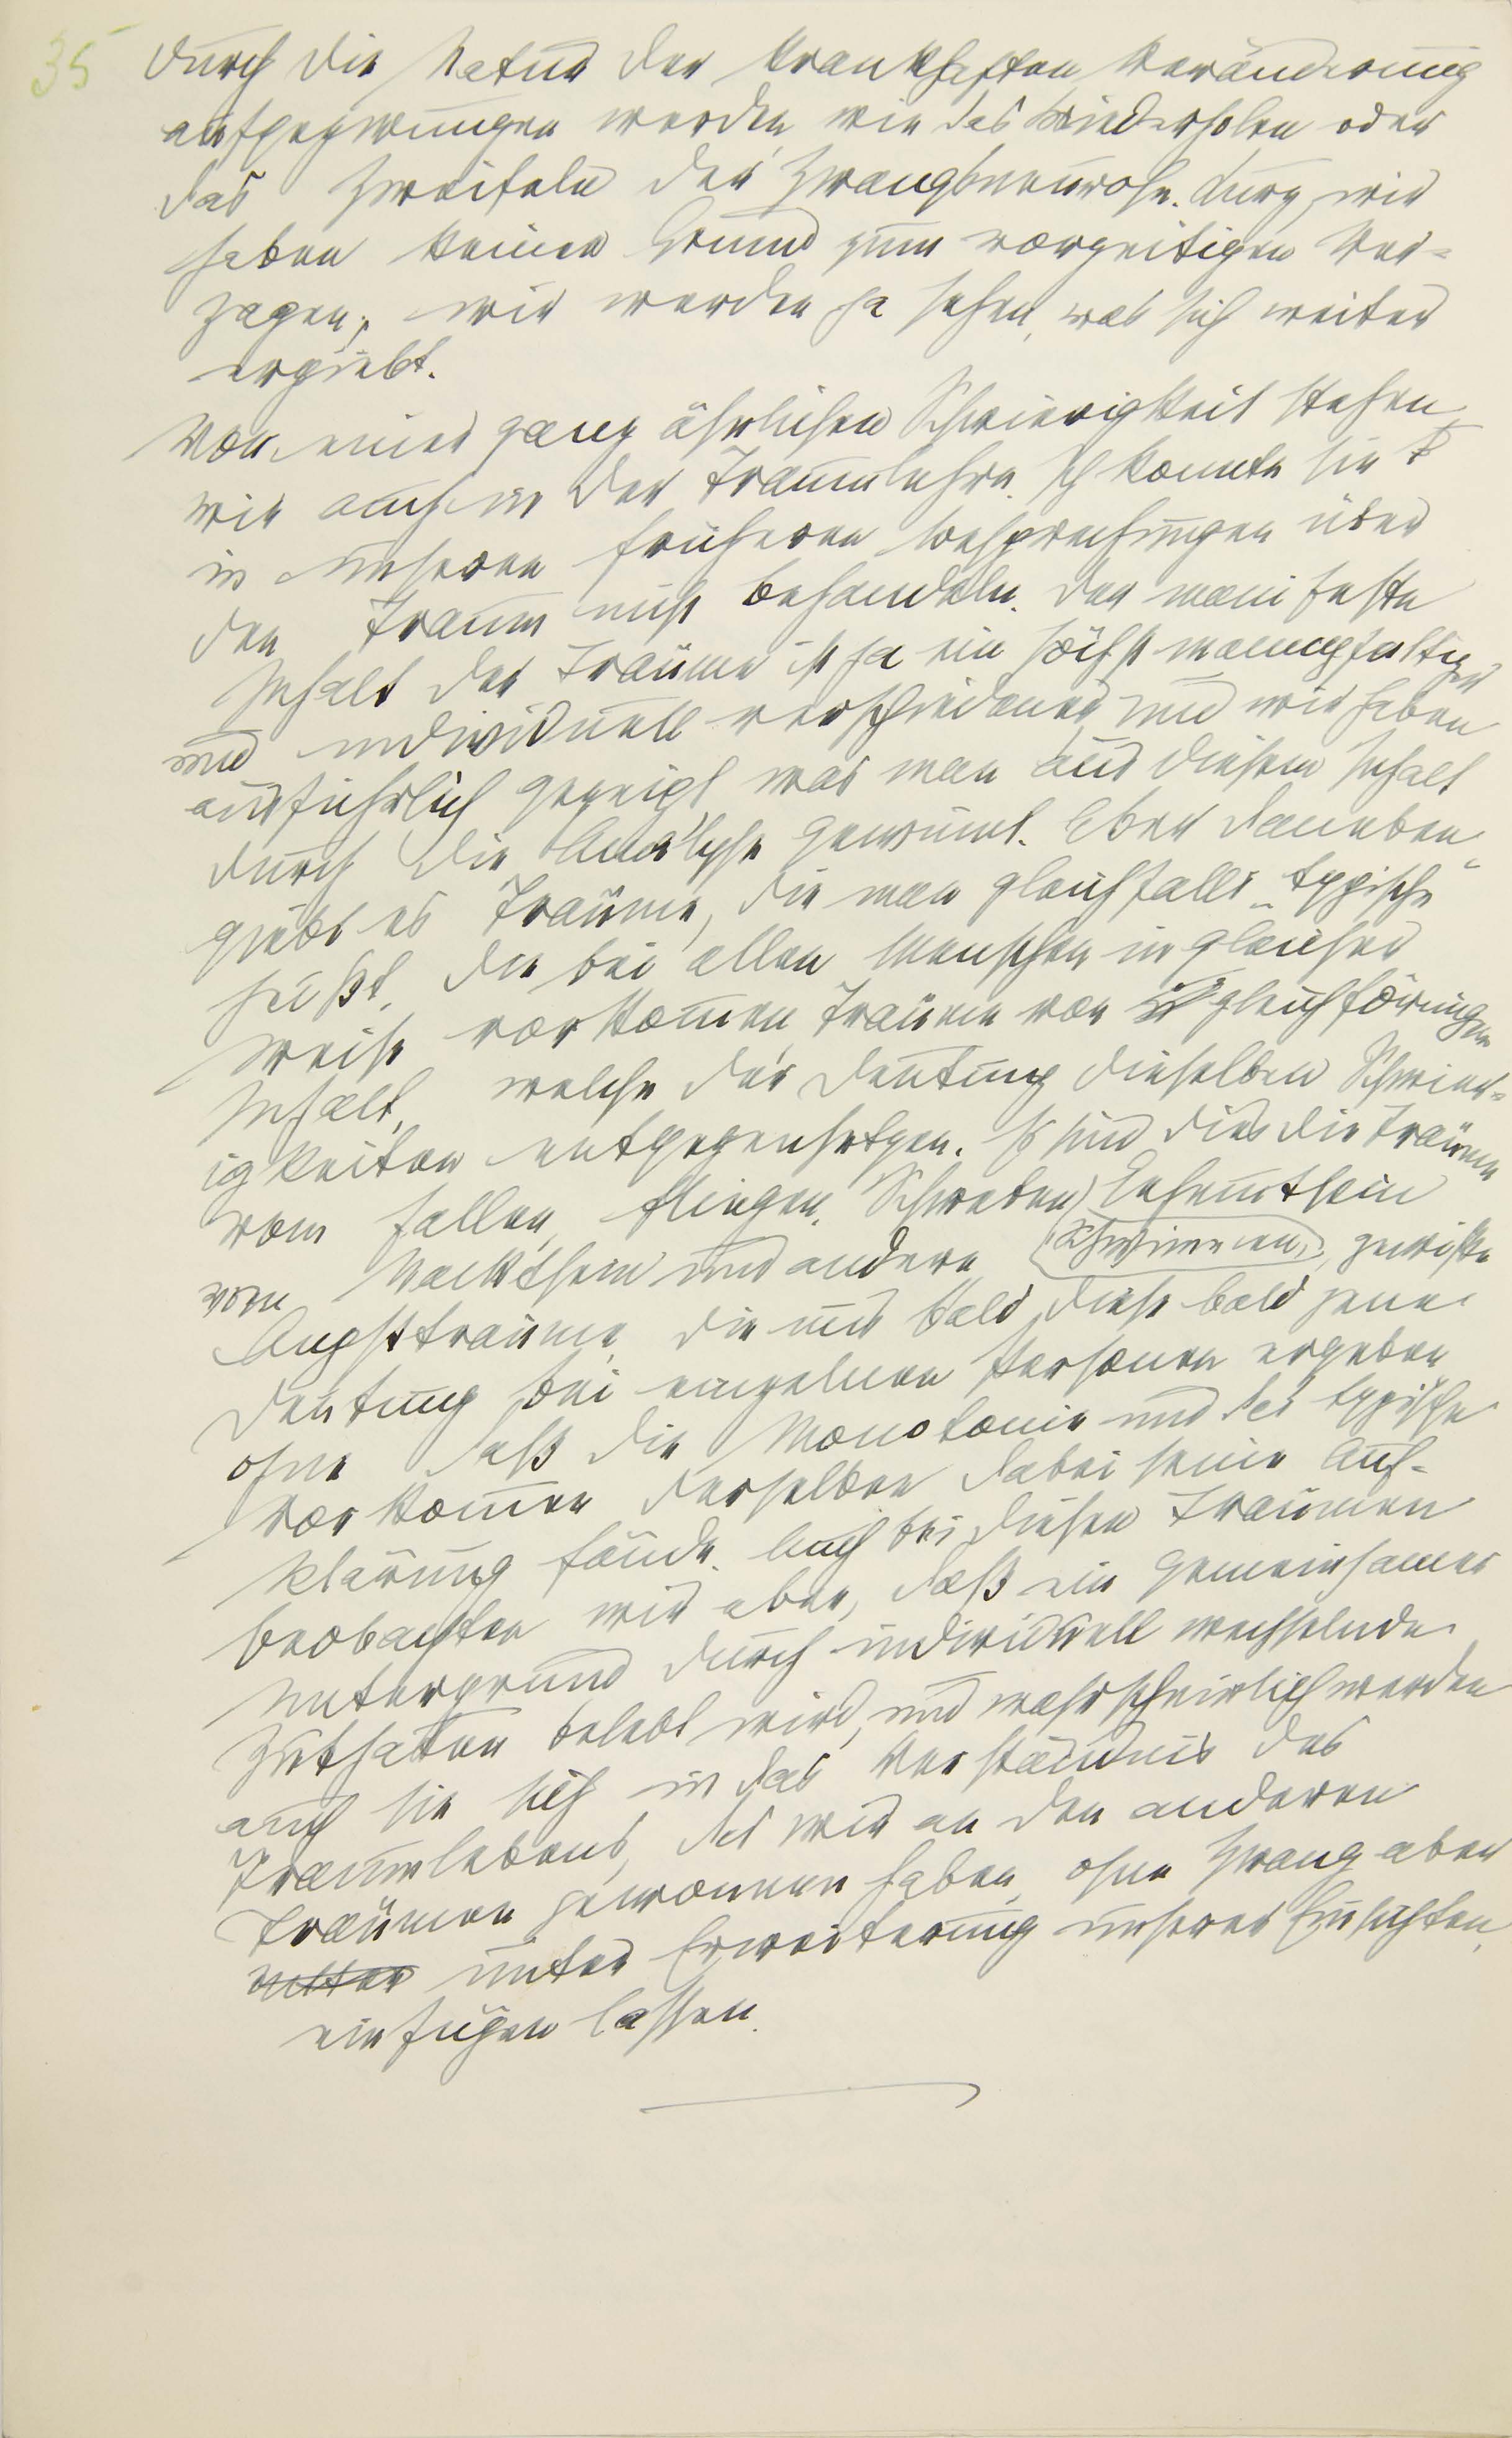 35
durch die Natur der krankhaften Veränderung
aufgezwungen werden, wie das Wiederholen oder
das Zweifeln der Zwangsneurose. Kurz, wir
haben keinen Grund zum vorzeitigen Ver-
zagen; wir werden ja sehen, was sich weiter
ergiebt.
Vor einer ganz ähnlichen Schwierigkeit stehen
wir auch in der Traumlehre. Ich konnte sie
in unseren früheren Besprechungen über
den Traum nicht behandeln. Der manifeste
Inhalt der Träume ist ja ein höchst mannigfaltiger
und individuell verschiedener und wir haben
ausführlich gezeigt was man aus diesem Inhalt
durch die Analyse gewinnt. Aber daneben
giebt es Träume, die man gleichfalls „typische“
heißt, die bei allen Menschen in gleicher
Weise vorkommen, Träume von gleichförmigem
Inhalt, welche der Deutung dieselben Schwier-
igkeiten entgegensetzen. Es sind dies die Träume
vom Fallen, Fliegen, Schweben, Gehemmtsein
vom Nacktsein und andere Schwimmen, gewisse
Angstträume, die uns bald diese bald jene
Deutung bei einzelnen Personen ergeben
ohne daß die Monotonie und das typische
Vorkommen derselben dabei seine Auf-
klärung fände. Auch bei diesen Träumen
beobachten wir aber, daß ein gemeinsamer
Untergrund durch individuell wechselnde
Zuthaten belebt wird, und wahrscheinlich werden
auch sie sich in das Verständnis des
Traumlebens, das wir an den anderen
Träumen gewonnen haben, ohne Zwang aber
unter Erweiterung unserer Einsichten
einfügen lassen.